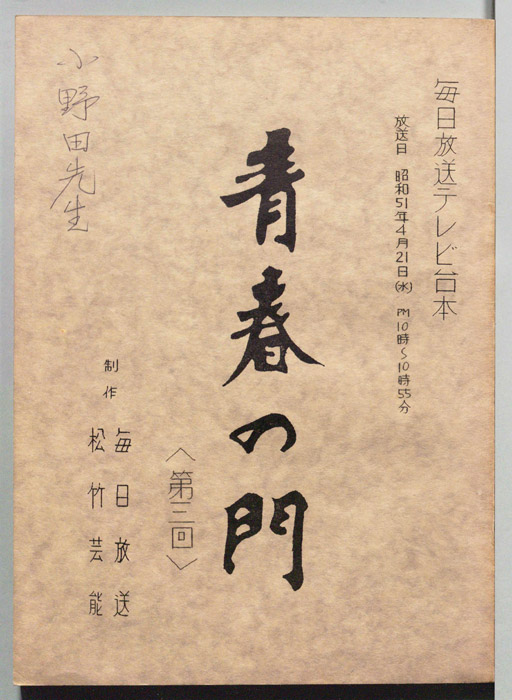 毎日放送テレビ台本
放送日 昭和51年4月21日(水) PM10時〜10時55分
青春の門
〈第三回〉
制作
毎日放送
松竹芸能
小野田先生